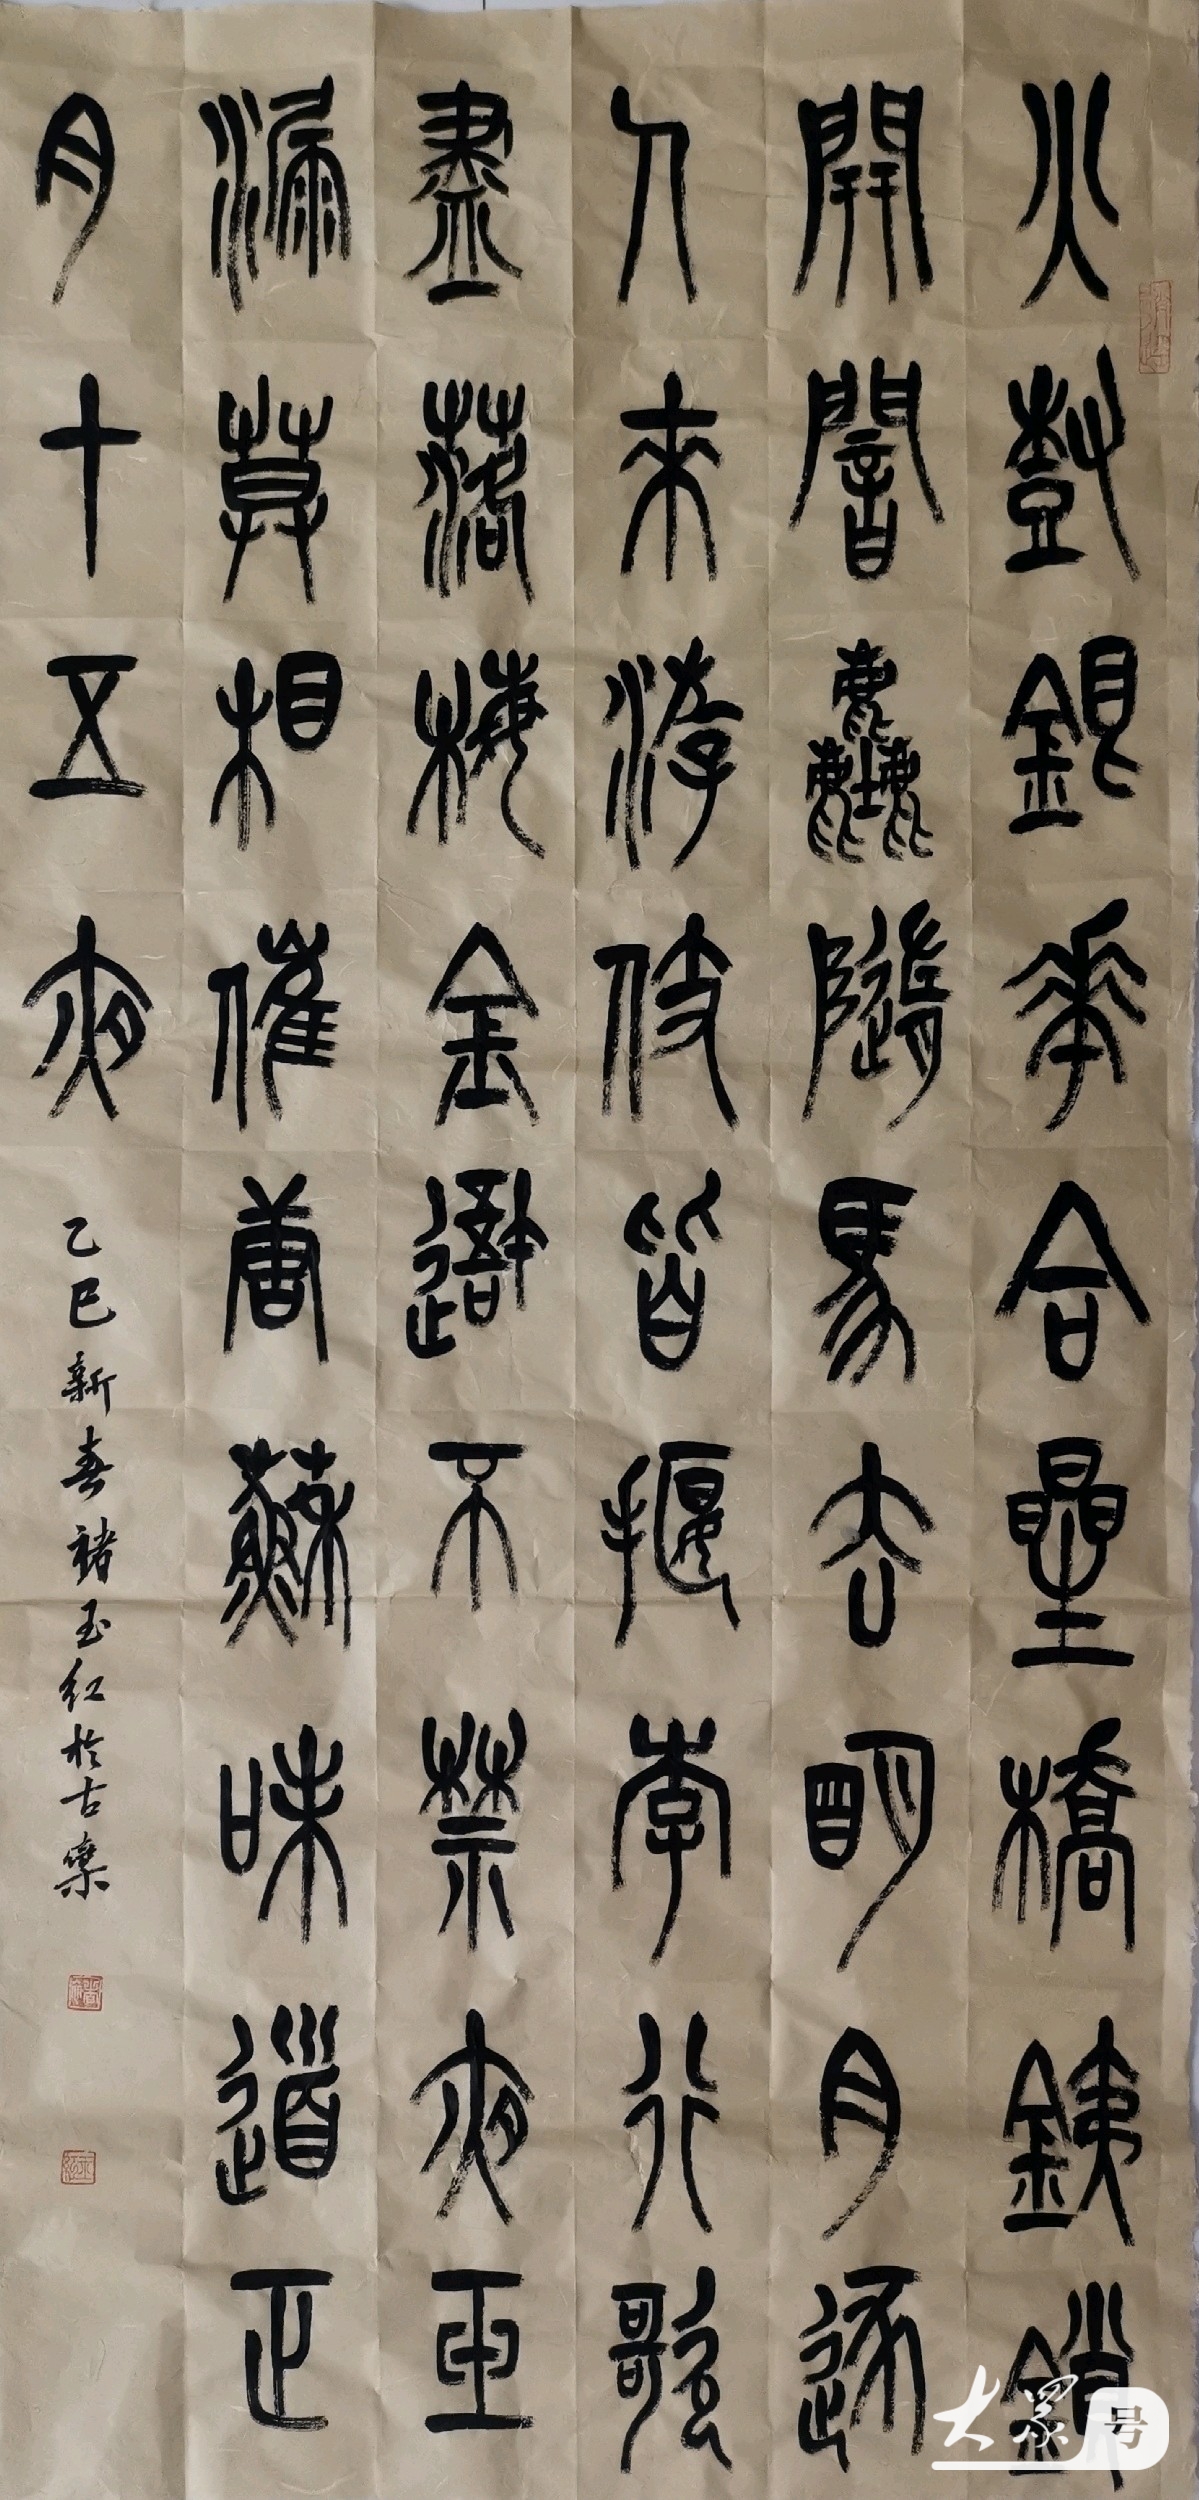 火樹銀花合星橋銕鎖
開闇塵隨馬去明月逐
人來游伎皆穠李行歌
盡落梅金吾不禁夜玉
漏莫相催唐蘇味道正
月十五夜
乙巳新春褚玉紅於古欒
大眾号